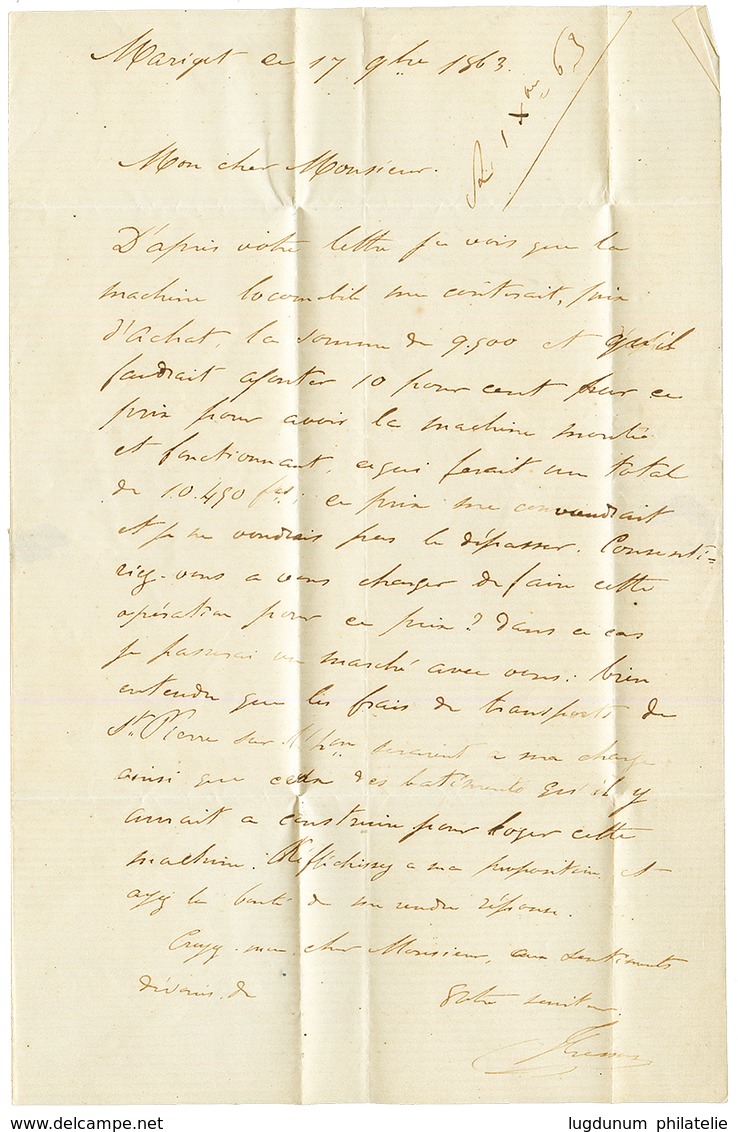 Mariget ce 17 9bre 1863.
1 Xbre 63
Mon cher Monsieur.
D'après votre lettre je vois que la
machine locomobile me couterait, prix
d'achat, la somme de 9.500 et qu'il
faudrait ajouter 10 pour cent sur ce
prix pour avoir la machine montée
et fonctionnant, ce qui ferait un total
de 10.450 fcs; ce prix me conviendrait
et je ne voudrais pas le dépasser. Consenti=
riez-vous a vous charger de faire cette
opération pour ce prix? dans ce cas
je passerai un marché avec vous: bien
entendu que les frais de transports de
St Pierre sur seraient a ma charge
ainsi que ceux des batiments qu'il y
aurait a construire pour loger cette
machine. Réfléchissez a ma proposition et
ayez la bonté de me rendre réponse.
Croyez-moi cher Monsieur, aux sentiments
dévoués de
Votre serviteur
lugdunum philatelie